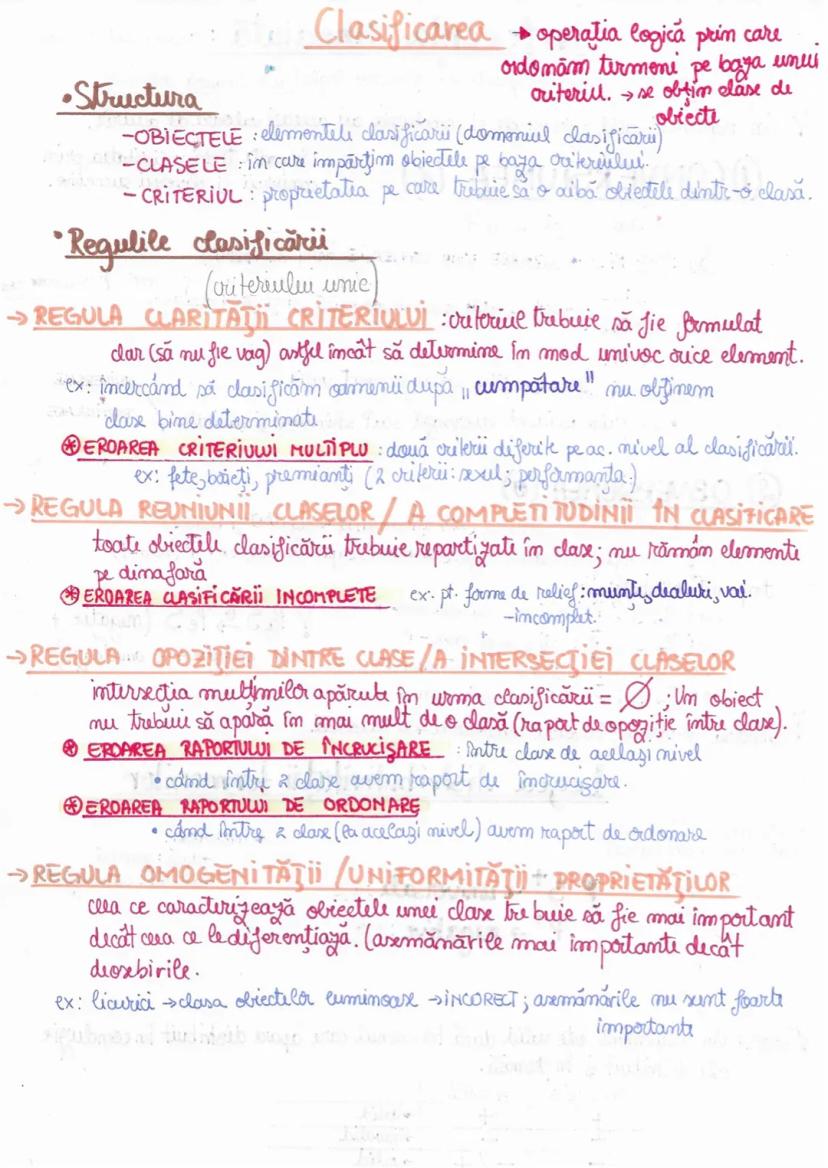 Clasificarea → operația logică prin care
ordonăm termeni pe baza unui
criteriu. → se obțin clase de
obiecte
• Structura
- OBIECTELE : elementele clasificării (domeniul clasificării)
- CLASELE : în care împărțim obiectele pe baza criteriului.
- CRITERIUL : proprietatea pe care trebuie să o aibă obiectele dintr-o clasă.
• Regulile clasificării
(criteriului unic)
→ REGULA CLARITĂȚII CRITERIULUI : criteriul trebuie să fie formulat
clar (să nu fie vag) astfel încât să determine în mod univoc orice element.
ex: încercând să clasificăm oamenii după „cumpătare" nu obținem
clase bine determinate
⊛ EROAREA CRITERIULUI MULTIPLU : două criterii diferite pe ac. nivel al clasificării.
ex: fete, băieți, premianți (2 criterii: sexul, performanța)
→ REGULA REUNIUNII CLASELOR / A COMPLETITUDINII ÎN CLASIFICARE
toate obiectele clasificării trebuie repartizate în clase; nu rămân elemente
pe dinafară
⊛ EROAREA CLASIFICĂRII INCOMPLETE ex: pt. forme de relief: munți, dealuri, văi.
- incomplet.
→ REGULA OPOZIȚIEI DINTRE CLASE / A INTERSECȚIEI CLASELOR
intersecția mulțimilor apărute în urma clasificării = ∅; Un obiect
nu trebuie să apară în mai mult de o clasă (raport de opoziție între clase).
⊛ EROAREA RAPORTULUI DE ÎNCRUCIȘARE : între clase de același nivel
• când între 2 clase avem raport de încrucișare.
⊛ EROAREA RAPORTULUI DE ORDONARE
• când între 2 clase (la același nivel) avem raport de ordonare
→ REGULA OMOGENITĂȚII / UNIFORMITĂȚII PROPRIETĂȚILOR
ceea ce caracterizează obiectele unei clase trebuie să fie mai important
decât ceea ce le diferențiază. (asemănările mai importante decât
deosebirile.
ex: licurici → clasa obiectelor luminoase → INCORECT; asemănările nu sunt foarte
importante